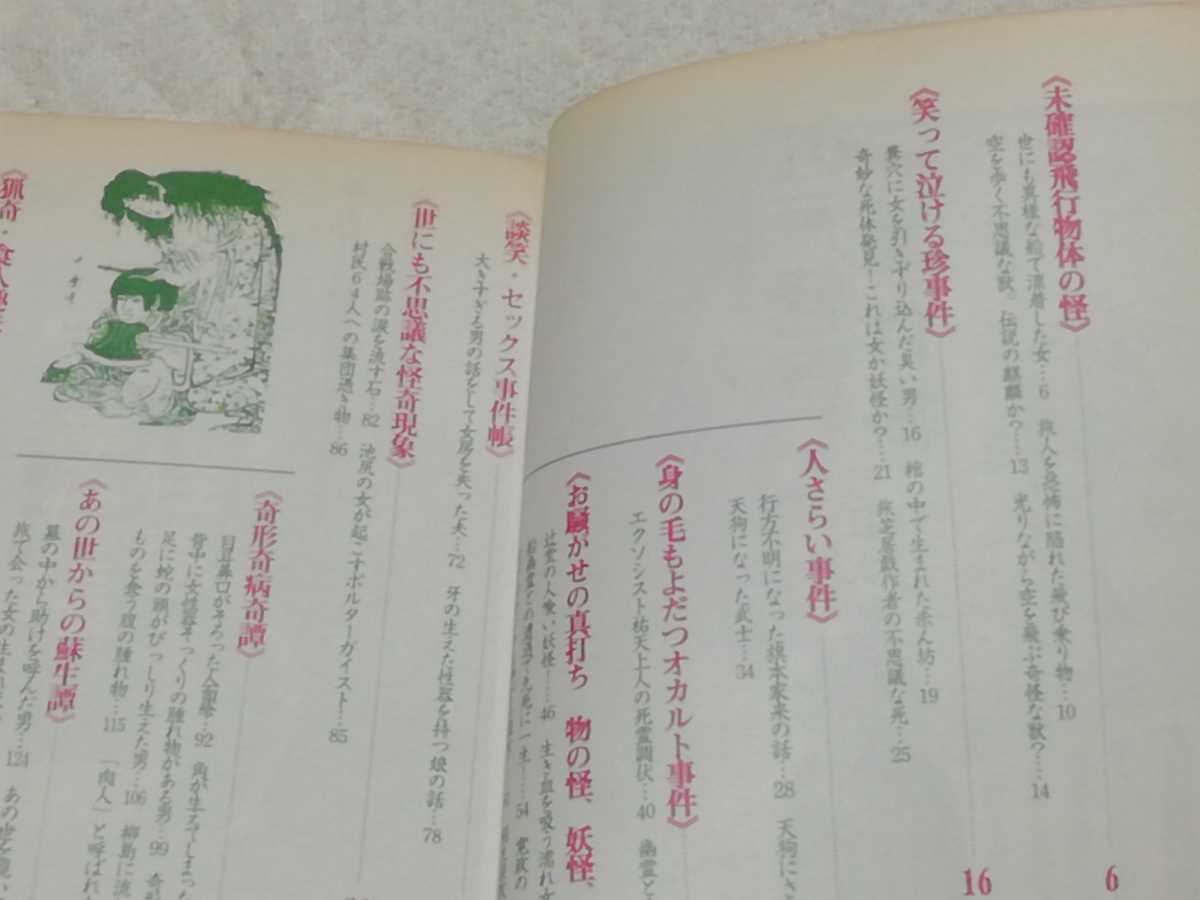 《未確認飛行物体の怪》
6
世にも異様な船で漂着した女…6 旅人を恐怖に陥れた飛び乗り物…10
空を歩く不思議な獣。伝説の麒麟か?……13 光りながら空を飛ぶ奇怪な獣?……14
《笑って泣ける珍事件》
16
異穴に女を引きずり込んだ臭い男…16 棺の中で生まれた赤ん坊…19
奇妙な死体発見!これは女か妖怪か?……21 旅芝居戯作者の不思議な死…25
《人さらい事件》
行方不明になった旗本家来の話…28 天狗にさ
天狗になった武士…34
《身の毛もよだつオカルト事件》
エクソシスト祐天上人の死霊調伏…40 幽霊と
《お騒がせの真打ち 物の怪、妖怪、
辻堂の人喰い妖怪!……46 生き血を吸う濡れ女
九死に一生…54
《談笑・セックス事件帳》
大きすぎる男の話をして女房を失った夫…72 牙の生えた性器を持つ娘の話…78
《世にも不思議な怪奇現象》
合戦場跡の涙を流す石…82 池尻の女が起こすポルターガイスト…85
村民64人への集団憑き物…86
《奇形奇病奇譚》
目耳鼻口がそろった人面瘡…92 角が生えてしまった
背中に女性器そっくりの腫れ物がある男…99 奇
足に蛇の頭がびっしり生えた男…106 柳島に流
ものを食う腹の腫れ物…115 「肉人」と呼ばれ
《あの世からの蘇生譚》
墓の中から助けを呼んだ男…124 あの世を覗い
旅で会った女の生
《猟奇・食人